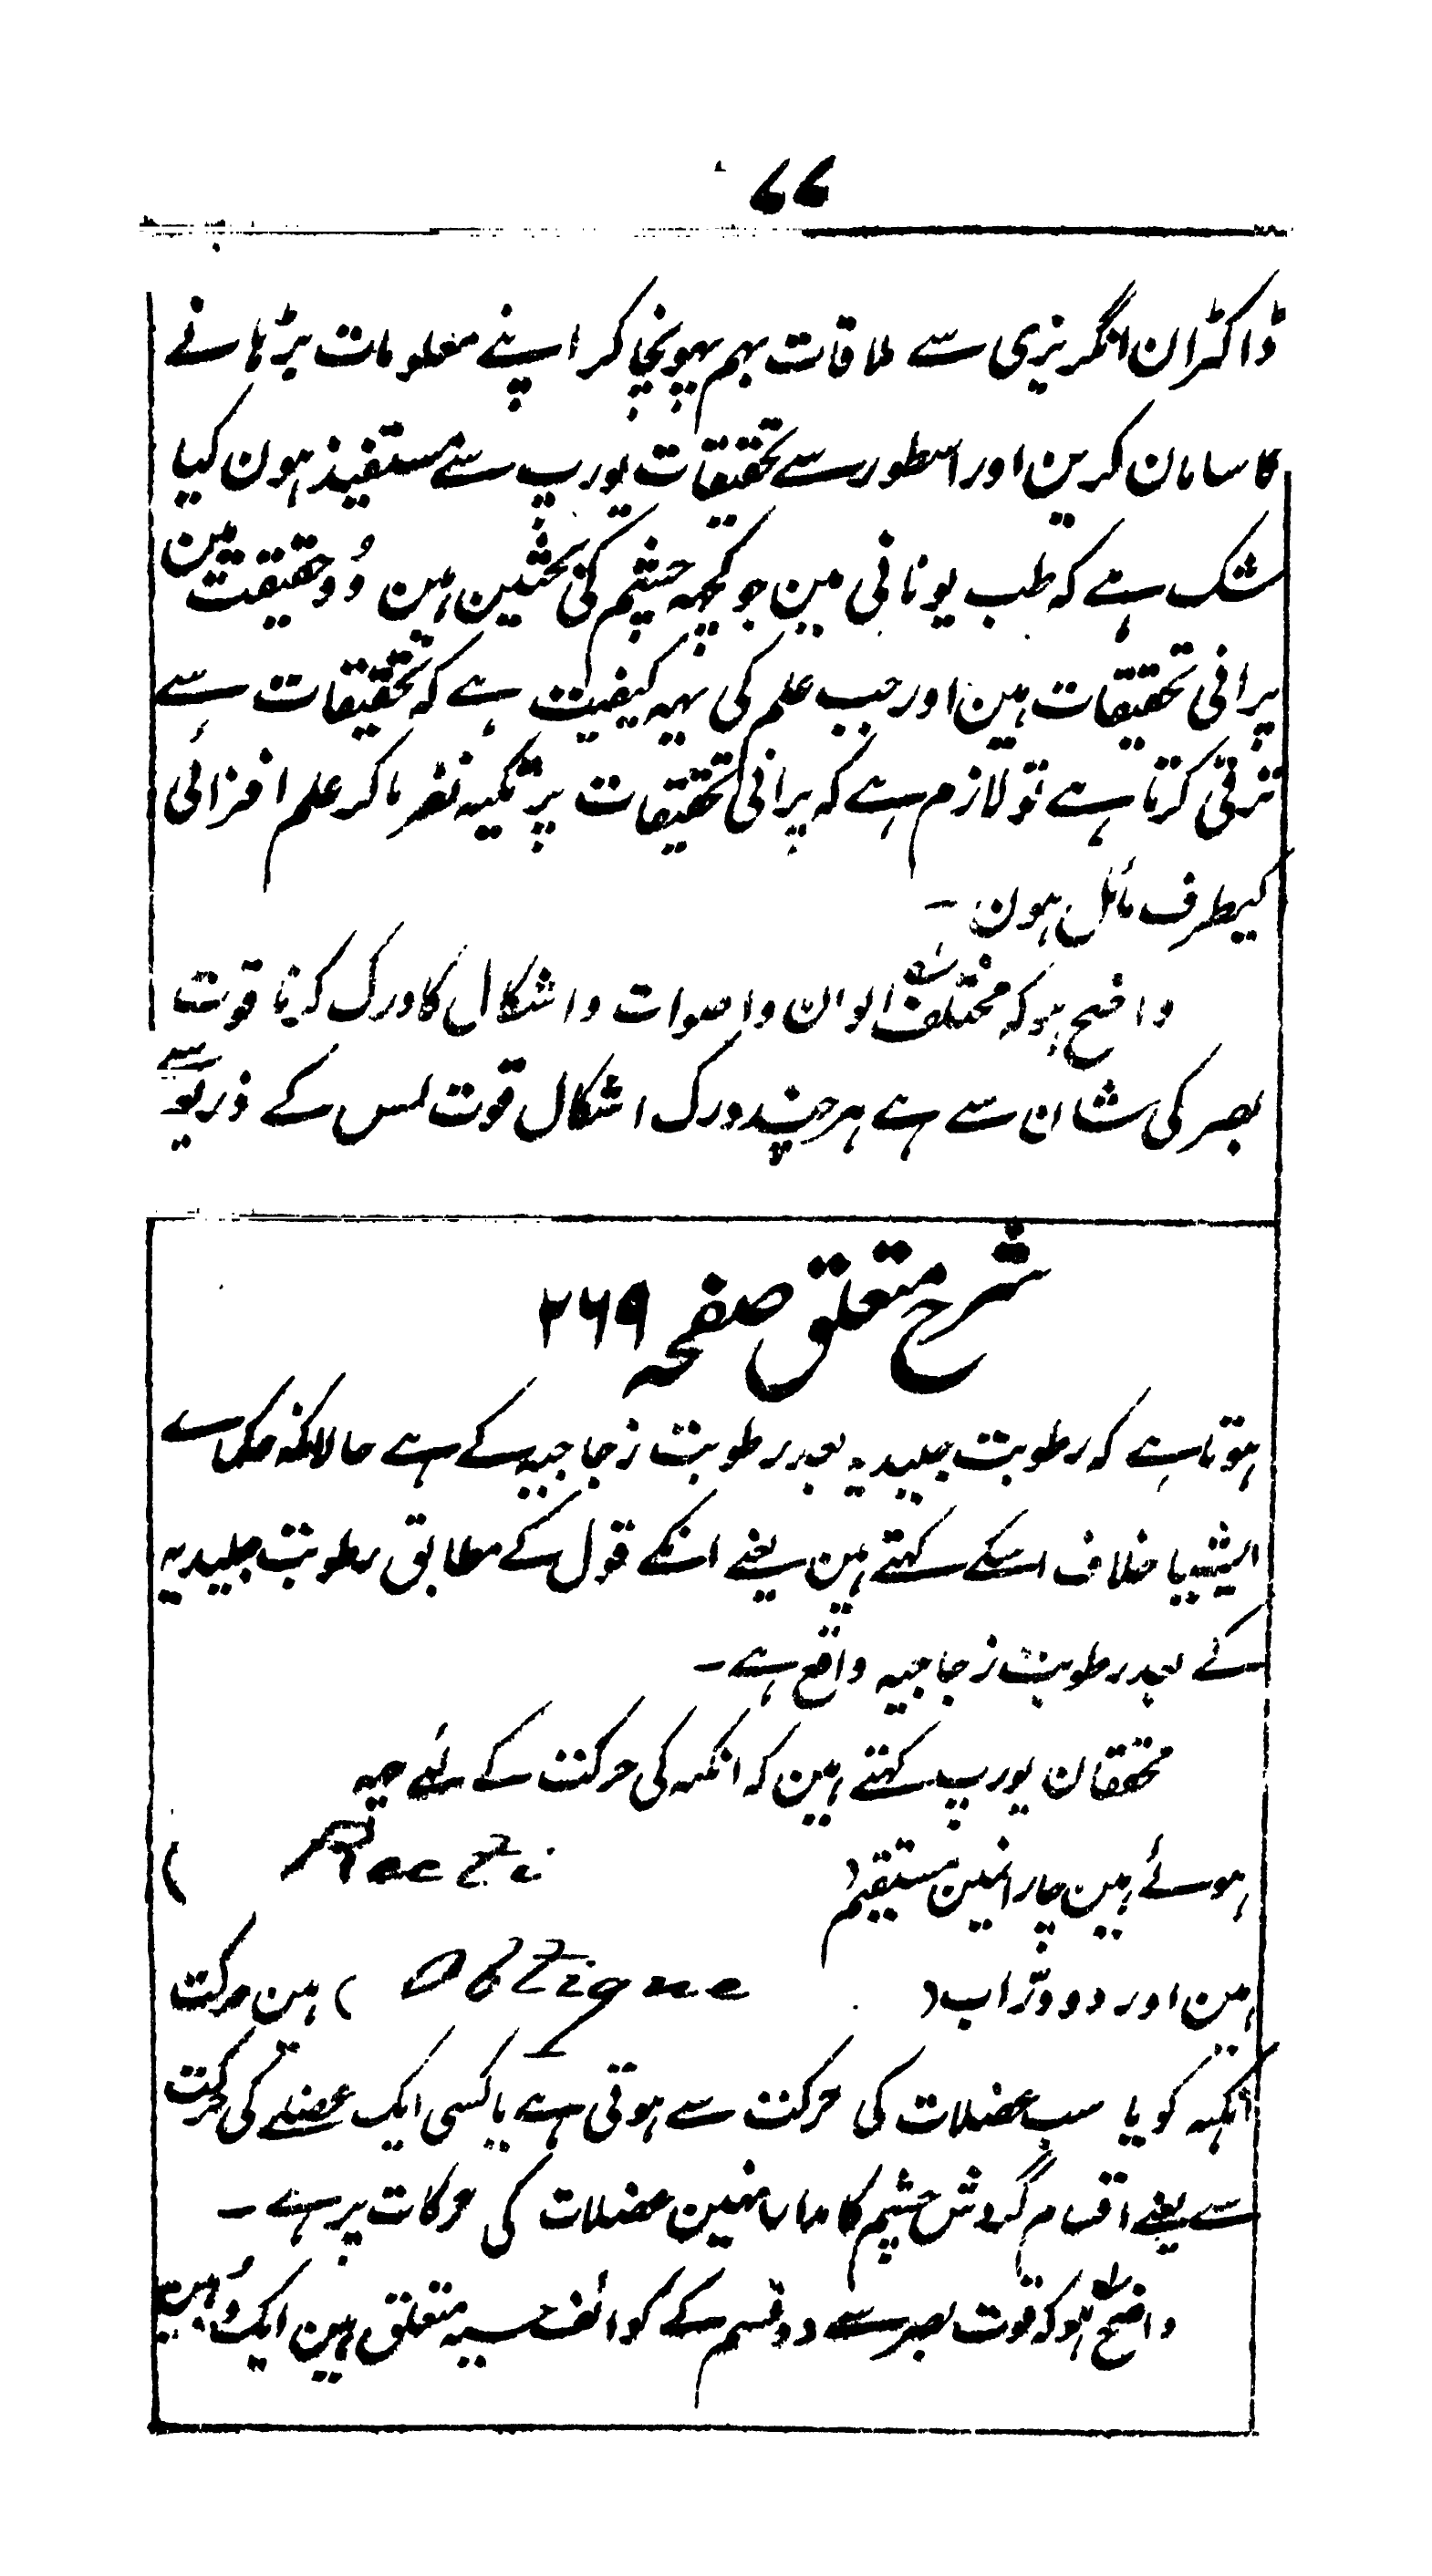 ۷۷
ڈاکٹران انگریزی سے ملاقات بہم پہونچا کر اپنے معلومات بڑہانے
کا سامان کرین اور اسطور سے تحقیقات یورپ سے مستفیذ ہون کیا
شک ہے کہ طب یونانی مین جو کچھہ چشم کی بحثین ہین وُہ حقیقت مین
پرانی تحقیقات ہین اور جب علم کی یہہ کیفیت ہے کہ تحقیقات سے
ترقی کرتا ہے تو لازم ہے کہ پرانی تحقیقات پر تکیہ نفرما کر علم افزائی
کیطرف مائل ہون ۔
واضح ہو کہ مختلف الوان و اصوات و اشکال کا درک کرنا قوت
بصر کی شان سے ہے ہر چند درک اشکال قوت لمس کے ذریعہ سے
شرح متعلق صفحہ ۲۶۹
ہوتا ہے کہ رطوبت جلیدیہ بعد رطوبت زجاجیہ کے ہے حالانکہ حکماے
ایشیا خلاف اسکے کہتے ہین یعنے انکے قول کے مطابق رطوبت جلیدیہ
کے بعد رطوبت زجاجیہ واقع ہے ۔
محققان یورپ کہتے ہین کہ آنکہہ کی حرکت کے لئے چہہ
ہوئے ہین چار انمین مستقیم ( Recti )
ہین اور دو ورّاب ( Oblique ) ہین حرکت
آنکہہ کو یا سب عضلات کی حرکت سے ہوتی ہے یا کسی ایک عضلے کی حرکت
سے یعنے اقسام گردش چشم کا مدار انہین عضلات کی حرکات پر ہے ۔
واضح ہو کہ قوت بصر سے دو قسم کے کوائف حسیہ متعلق ہین ایک وُہ ہین